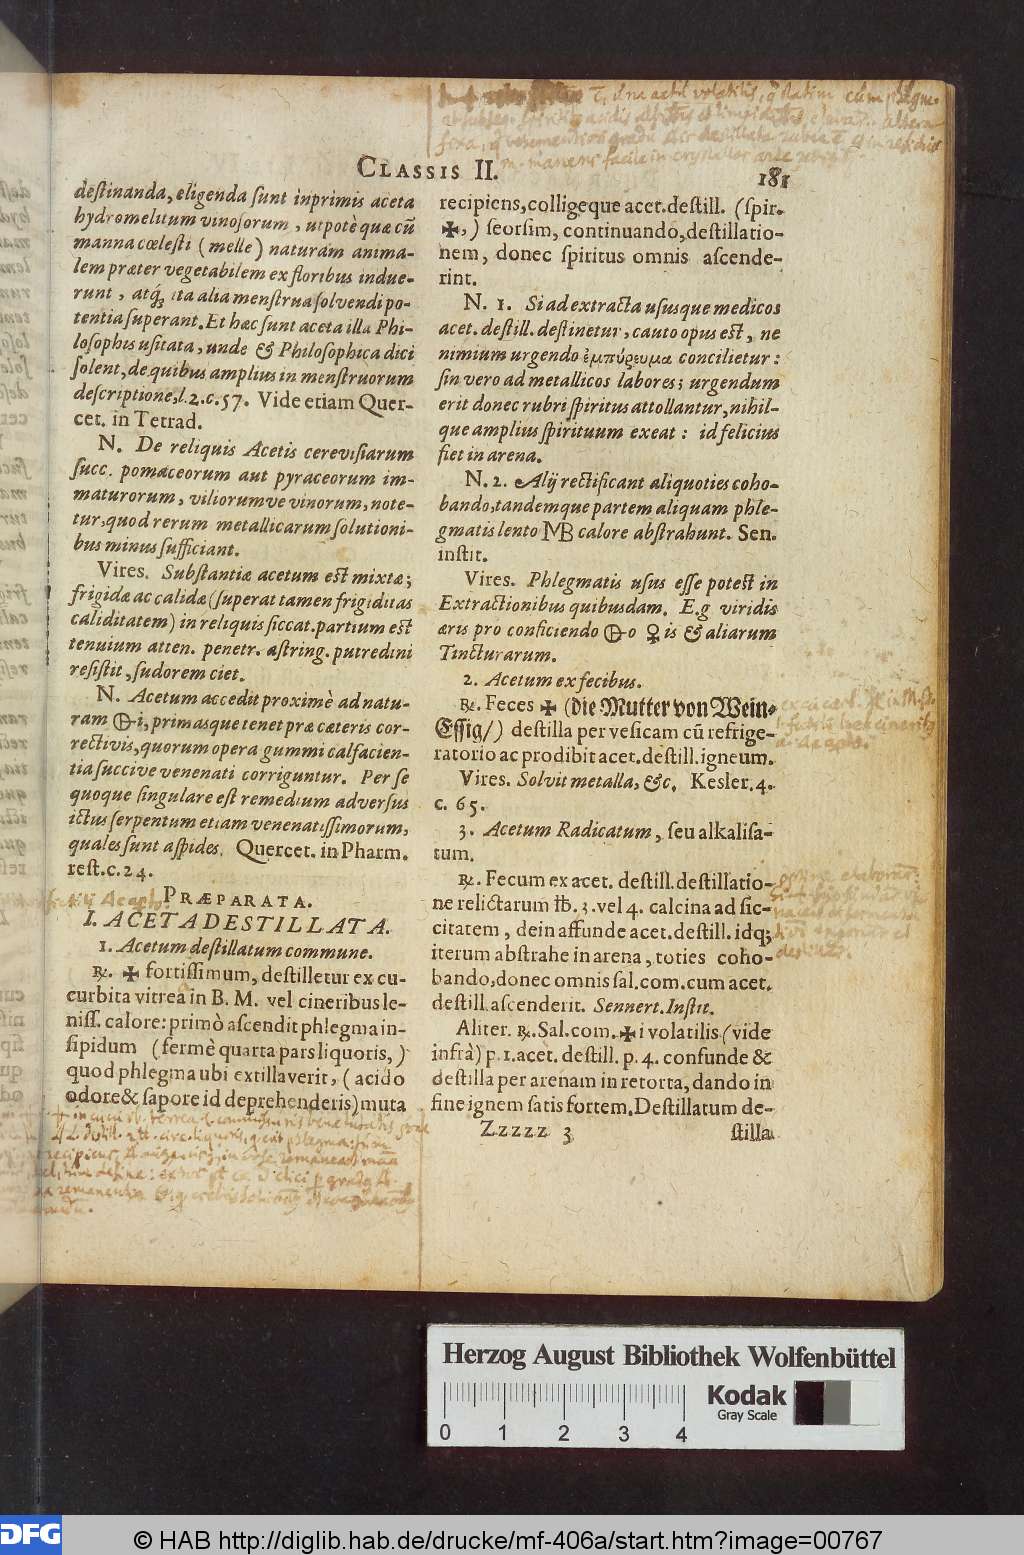 CLASSIS II.
181
destinanda, eligenda sunt inprimis aceta
hydromelitum vinosorum, utpotè quæ cũ
manna cœlesti (melle) naturam anima-
lem præter vegetabilem ex floribus indue-
runt, atq; ita alia menstrua solvendi po-
tentia superant. Et hæc sunt aceta illa Phi-
losophis usitata, unde & Philosophica dici
solent, de quibus amplius in menstruorum
descriptione, l. 2. c. 57. Vide etiam Quer-
cet. in Tetrad.
N. De reliquis Acetis cerevisiarum
succ. pomaceorum aut pyraceorum im-
maturorum, viliorumve vinorum, note-
tur, quod rerum metallicarum solutioni-
bus minus sufficiant.
Vires. Substantiæ acetum est mixtæ;
frigidæ ac calidæ (superat tamen frigiditas
caliditatem) in reliquis siccat. partium est
tenuium atten. penetr. astring. putredini
resistit, sudorem ciet.
N. Acetum accedit proximè ad natu-
ram 🜖i, primasque tenet præ cæteris cor-
rectivis, quorum opera gummi calfacien-
tia succive venenati corriguntur. Per se
quoque singulare est remedium adversus
ictus serpentum etiam venenatissimorum,
quales sunt aspides. Quercet. in Pharm.
rest. c. 24.
PRÆPARATA.
I. ACETA DESTILLATA.
1. Acetum destillatum commune.
℞. ✠ fortissimum, destilletur ex cu-
curbita vitrea in B. M. vel cineribus le-
niss. calore: primò ascendit phlegma in-
sipidum (fermè quarta pars liquoris,)
quod phlegma ubi extillaverit, (acido
odore & sapore id deprehenderis) muta
recipiens, colligeque acet. destill. (spir.
✠,) seorsim, continuando, destillatio-
nem, donec spiritus omnis ascende-
rint.
N. 1. Si ad extracta ususque medicos
acet. destill. destinetur, cauto opus est, ne
nimium urgendo ἐμπύρευμα concilietur:
sin vero ad metallicos labores; urgendum
erit donec rubri spiritus attollantur, nihil-
que amplius spirituum exeat: id felicius
fiet in arena.
N. 2. Alij rectificant aliquoties coho-
bando, tandemque partem aliquam phle-
gmatis lento MB calore abstrahunt. Sen.
instit.
Vires. Phlegmatis usus esse potest in
Extractionibus quibusdam. E. g viridis
æris pro conficiendo 🜖o ♀is & aliarum
Tincturarum.
2. Acetum ex fecibus.
℞. Feces ✠ (die Mutter von Wein-
Essig/) destilla per vesicam cũ refrige-
ratorio ac prodibit acet. destill. igneum.
Vires. Solvit metalla, &c. Kesler. 4.
c. 65.
3. Acetum Radicatum, seu alkalisa-
tum.
℞. Fecum ex acet. destill. destillatio-
ne relictarum ℔. 3. vel 4. calcina ad sic-
citatem, dein affunde acet. destill. idq;
iterum abstrahe in arena, toties coho-
bando, donec omnis sal. com. cum acet.
destill. ascenderit. Sennert. Instit.
Aliter. ℞. Sal. com. ✠i volatilis (vide
infrà) p. 1. acet. destill. p. 4. confunde &
destilla per arenam in retorta, dando in
fine ignem satis fortem. Destillatum de-
Zzzzz 3
stilla
Herzog August Bibliothek Wolfenbüttel
Kodak
Gray Scale
0 1 2 3 4
DFG
© HAB http://diglib.hab.de/drucke/mf-406a/start.htm?image=00767